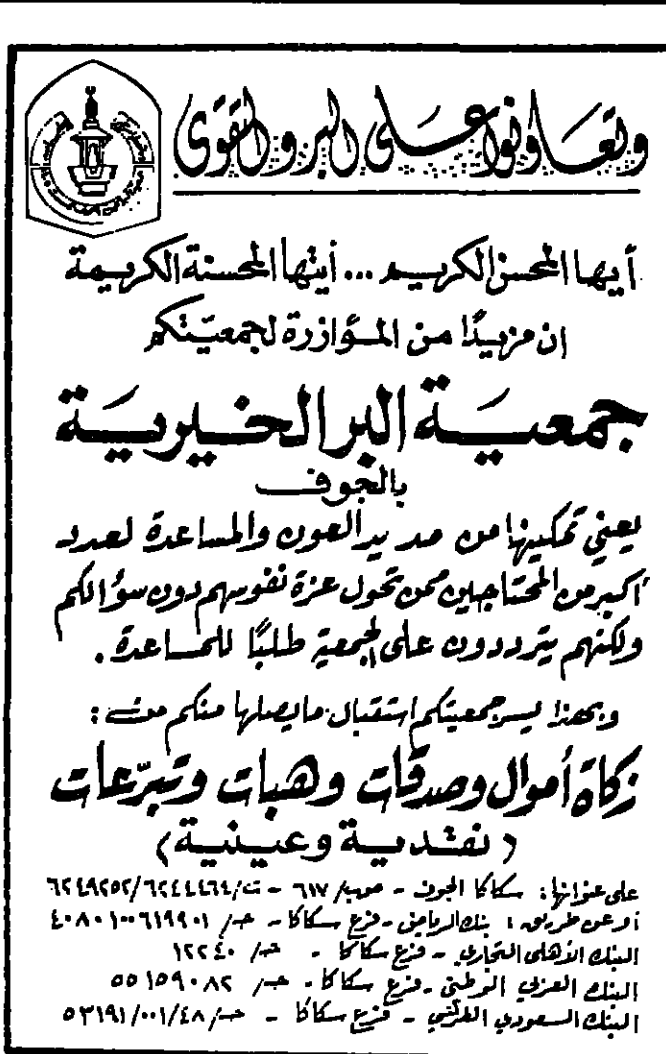 وتعاونوا على البر والتقوى
أيها المحسن الكريم ... أيتها المحسنة الكريمة
ان مزيدًا من المؤازرة لجمعيتكم
جمعية البر الخيرية
بالجوف
يعني تمكينها من مد يد العون والمساعدة لعدد
أكبر من المحتاجين ممن تحول عزة نفوسهم دون سؤالكم
ولكنهم يترددون على الجمعية طلبًا للمساعدة .
وبهذا يسر جمعيتكم استقبال ما يصلها منكم من :
زكاة أموال وصدقات وهبات وتبرّعات
( نقدية وعينية )
على عنوانها : سكاكا الجوف - ص.ب/ ٦١٧ - ت/ ٦٢٤٤٤٦٤/ ٦٢٤٩٢٥٢
أو عن طريق : بنك الرياض - فرع سكاكا - حـ/ ٤٠٨٠١٠٠٦١٩٩٠١
البنك الأهلي التجاري - فرع سكاكا - حـ/ ١٢٢٤٠
البنك العربي الوطني - فرع سكاكا - حـ/ ٥٥١٥٩٠٨٢
البنك السعودي الفرنسي - فرع سكاكا - حـ/ ٥٣١٩١/٠٠١/٤٨